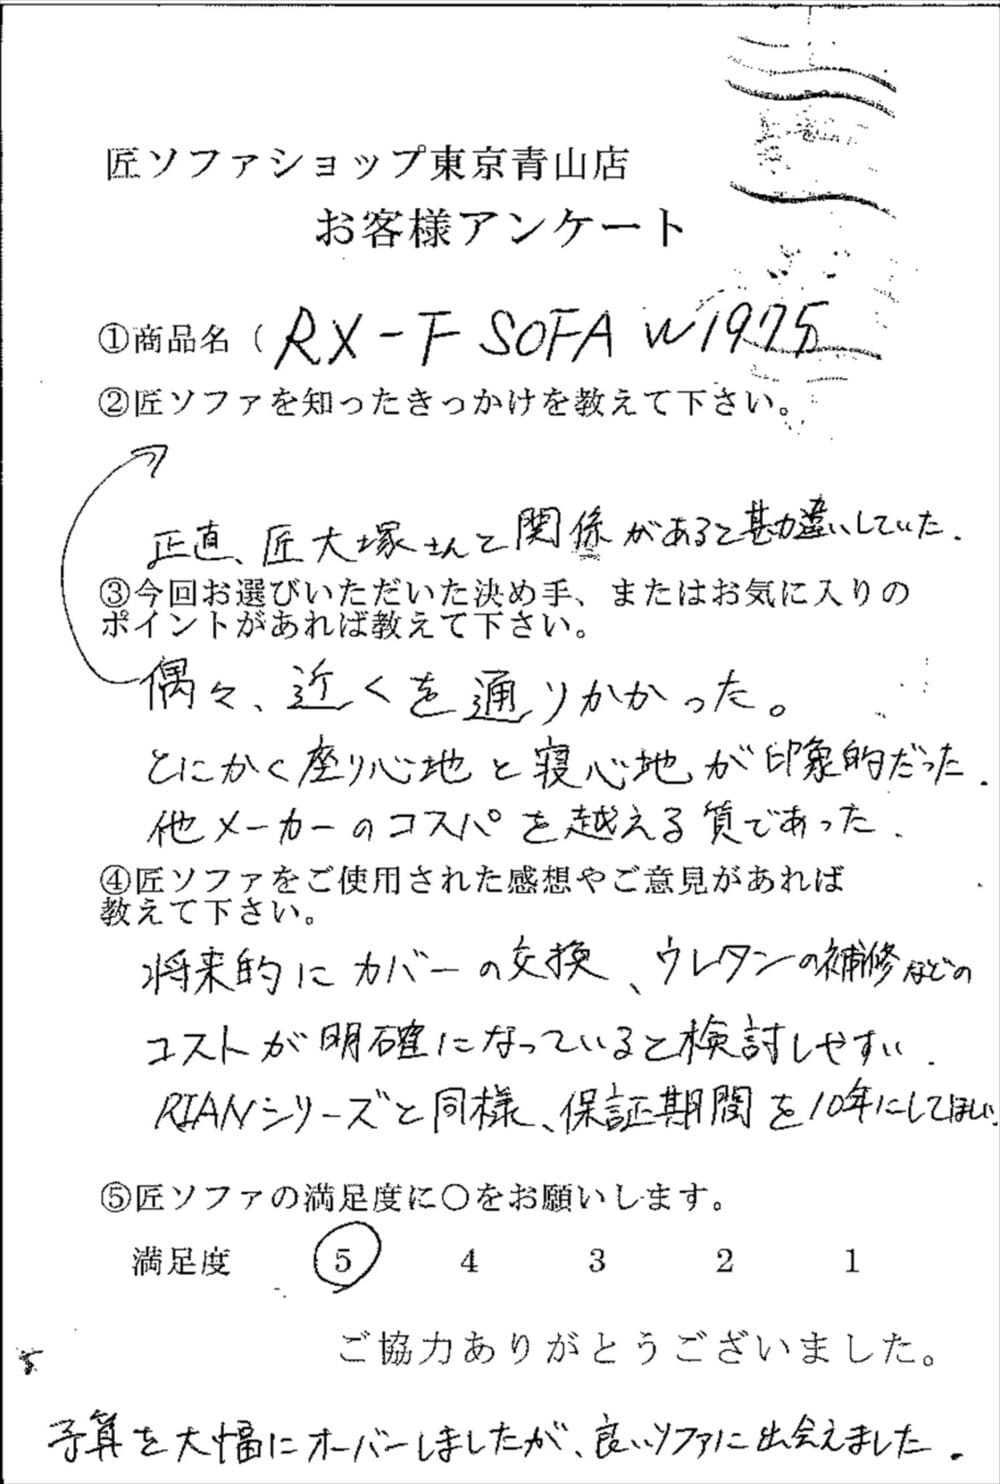 匠ソファショップ東京青山店
お客様アンケート
①商品名( RX-F SOFA W1975
②匠ソファを知ったきっかけを教えて下さい。
正直、匠大塚さんと関係があると勘違いしていた.
③今回お選びいただいた決め手、またはお気に入りの
ポイントがあれば教えて下さい。
偶々、近くを通りかかった。
とにかく座り心地と寝心地が印象的だった.
他メーカーのコスパを越える質であった.
④匠ソファをご使用された感想やご意見があれば
教えて下さい。
将来的にカバーの交換、ウレタンの補修などの
コストが明確になっていると検討しやすい.
RIANシリーズと同様、保証期間を10年にしてほしい.
⑤匠ソファの満足度に〇をお願いします。
満足度 5 4 3 2 1
ご協力ありがとうございました。
予算を大幅にオーバーしましたが、良いソファに出会えました.